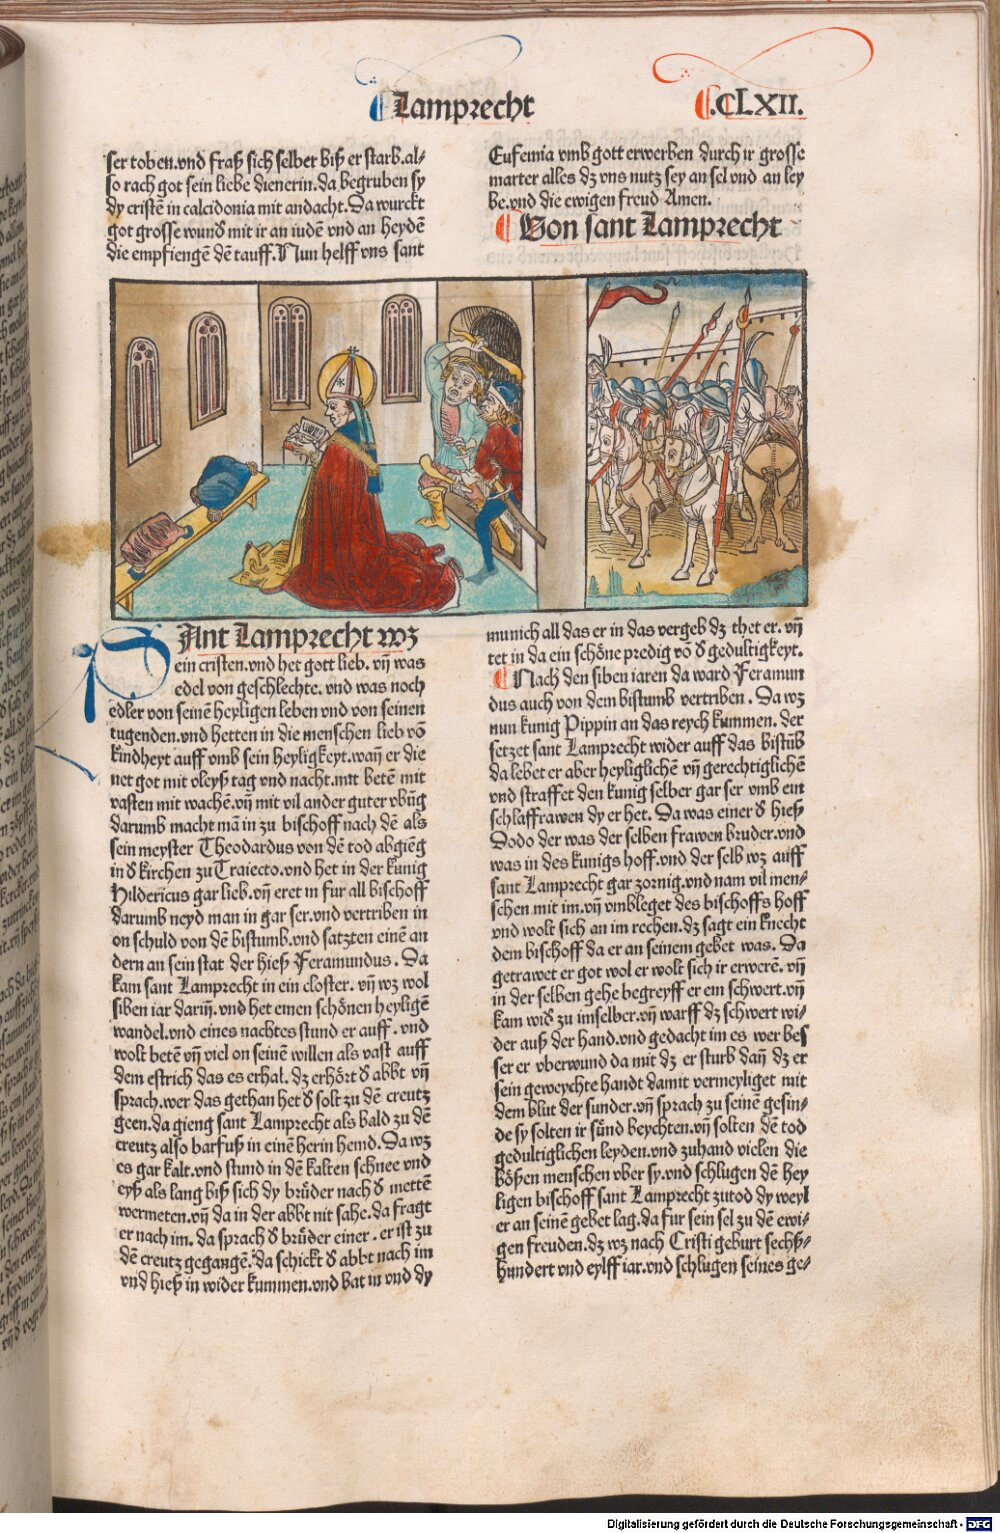 Lamprecht
.CLXII.
ser toben.vnd fraß sich selber biß er starb.al⸗
so rach got sein liebe dienerin.da begruben sy
dy cristē in calcidonia mit andacht.Da wurckt
got grosse wund̕ mit ir an iudē vnd an heydē
die empfiengē dē tauff.Nun helff vns sant
Eufemia vmb gott erwerben durch ir grosse
marter alles dz vns nutz sey an sel vnd an ley
be.vnd die ewigen freud Amen.
Von sant Lamprecht
SAnt Lamprecht wz
ein cristen.vnd het gott lieb. vñ was
edel von geschlechte. vnd was noch
edler von seinē heyligen leben vnd von seinen
tugenden.vnd hetten in die menschen lieb vō
kindheyt auff vmb sein heyligkeyt.wañ er die
net got mit vleyß tag vnd nacht.mit betē mit
vasten mit wachē.vñ mit vil ander guter vbūg
darumb macht mā in zu bischoff nach dē als
sein meyster Theodardus von dē tod abgieng
in d̕ kirchen zu Traiecto.vnd het in der kunig
Hildericus gar lieb.vñ eret in fur all bischoff
darumb neyd man in gar ser.vnd vertriben in
on schuld von dē bistumb.vnd satzten einē an
dern an sein stat der hieß Feramundus. Da
kam sant Lamprecht in ein closter. vñ wz wol
siben iar dariñ.vnd het einen schönen heyligē
wandel.vnd eines nachtes stund er auff. vnd
wolt betē vñ viel on seinē willen als vast auff
dem estrich das es erhal. dz erhört d̕ abbt vñ
sprach.wer das gethan het d̕ solt zu dē creutz
geen.da gieng sant Lamprecht als bald zu dē
creutz also barfuß in einē herin hemd.Da wz
es gar kalt.vnd stund in dē kalten schnee vnd
eyß als lang biß sich dy brüder nach d̕ mettē
wermeten.vñ da in der abbt nit sahe.da fragt
er nach im. da sprach d̕ brüder einer. er ist zu
dē creutz gegangē.da schickt d̕ abbt nach im
vnd hieß in wider kummen.vnd bat in vnd dy
munich all das er in das vergeb dz thet er. vñ
tet in da ein schöne predig vō d̕ gedultigkeyt.
Nach den siben iaren da ward Feramun
dus auch von dem bistumb vertriben. Da wz
nun kunig Pippin an das reych kummen. der
setzet sant Lamprecht wider auff das bistūb
da lebet er aber heyliglichē vñ gerechtiglichē
vnd straffet den kunig selber gar ser vmb ein
schlaffrawen dy er het. Da was einer d̕ hieß
Dodo der was der selben frawen bruder.vnd
was in des kunigs hoff.vnd der selb wz auff
sant Lamprecht gar zornig.vnd nam vil men⸗
schen mit im.vñ vmbleget des bischoffs hoff
vnd wolt sich an im rechen.dz sagt ein knecht
dem bischoff da er an seinem gebet was. Da
getrawet er got wol er wolt sich ir erwerē. vñ
in der selben gehe begreyff er ein schwert.vñ
kam wid̕ zu imselber.vñ warff dz schwert wi⸗
der auß der hand.vnd gedacht im es wer bes
ser er vberwund da mit dz er sturb dañ dz er
sein geweychte handt damit vermeyliget mit
dem blut der sunder.vñ sprach zu seinē gesin⸗
de sy solten ir sünd beychten.vñ solten dē tod
gedultiglichen leyden.vnd zuhand vielen die
bößen menschen vber sy.vnd schlugen dē hey
ligen bischoff sant Lamprecht zutod dy weyl
er an seinē gebet lag.da fur sein sel zu dē ewi⸗
gen freuden.dz wz nach Cristi geburt sechß⸗
hundert vnd eylff iar.vnd schlugen seines ge⸗
Digitalisierung gefördert durch die Deutsche Forschungsgemeinschaft - DFG